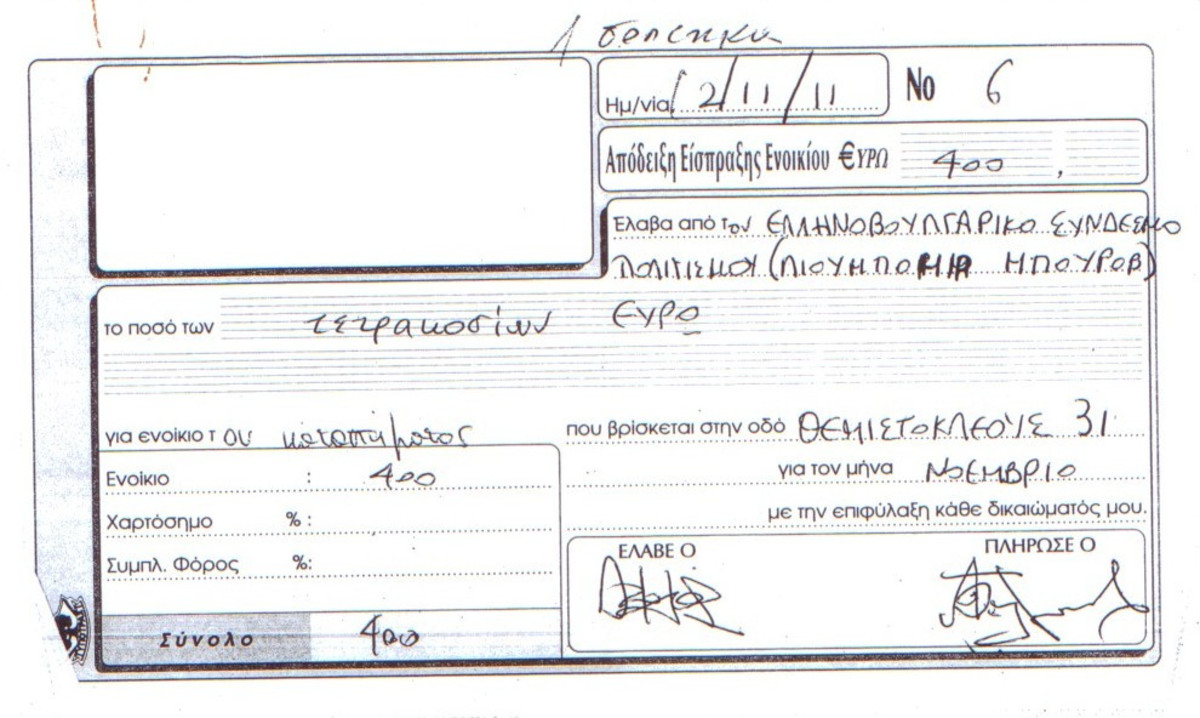 Ημ/νία 12/11/11 Νο 6
Απόδειξη Είσπραξης Ενοικίου €ΥΡΩ 400,
Έλαβα από τον ΕΛΛΗΝΟΒΟΥΛΓΑΡΙΚΟ ΣΥΝΔΕΣΜΟ
ΠΟΛΙΤΙΣΜΟΥ (ΛΙΟΥΜΠΟΜΗΡ ΜΠΟΥΡΟΒ)
το ποσό των τετρακοσίων ΕΥΡΩ
για ενοίκιο του καταστήματος που βρίσκεται στην οδό ΘΕΜΙΣΤΟΚΛΕΟΥΣ 31
για τον μήνα ΝΟΕΜΒΡΙΟ
με την επιφύλαξη κάθε δικαιώματός μου.
Ενοίκιο : 400
Χαρτόσημο % :
Συμπλ. Φόρος %:
Σύνολο 400
ΕΛΑΒΕ Ο ΠΛΗΡΩΣΕ Ο